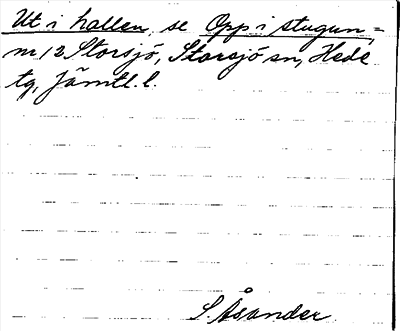 Ut i hallen, se Opp i stugun,=
nr 12 Storsjö, Storsjö sn, Hede
tg, Jämtl. l.
S. Åsander